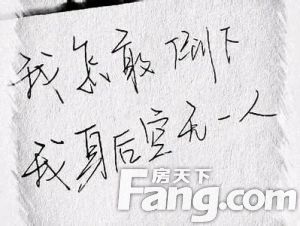 我怎敢倒下
我身后空无一人
房天下
Fang.com